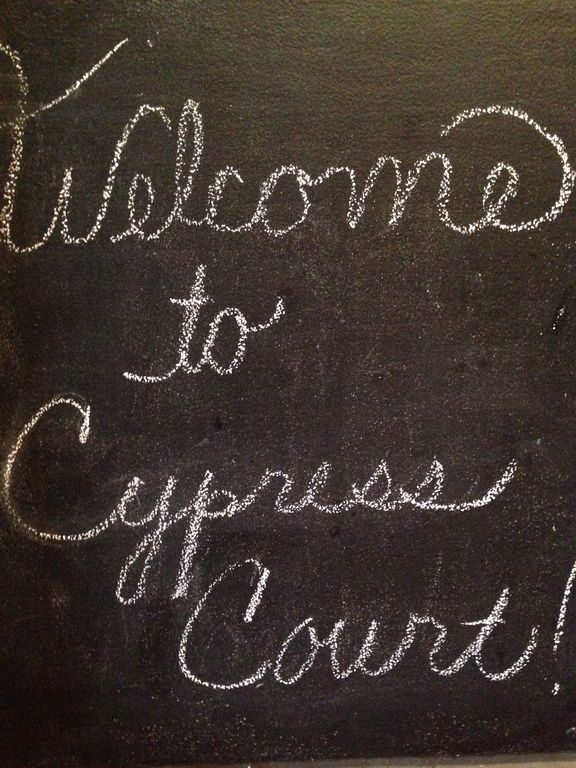 Welcome
to
Cypress
Court!